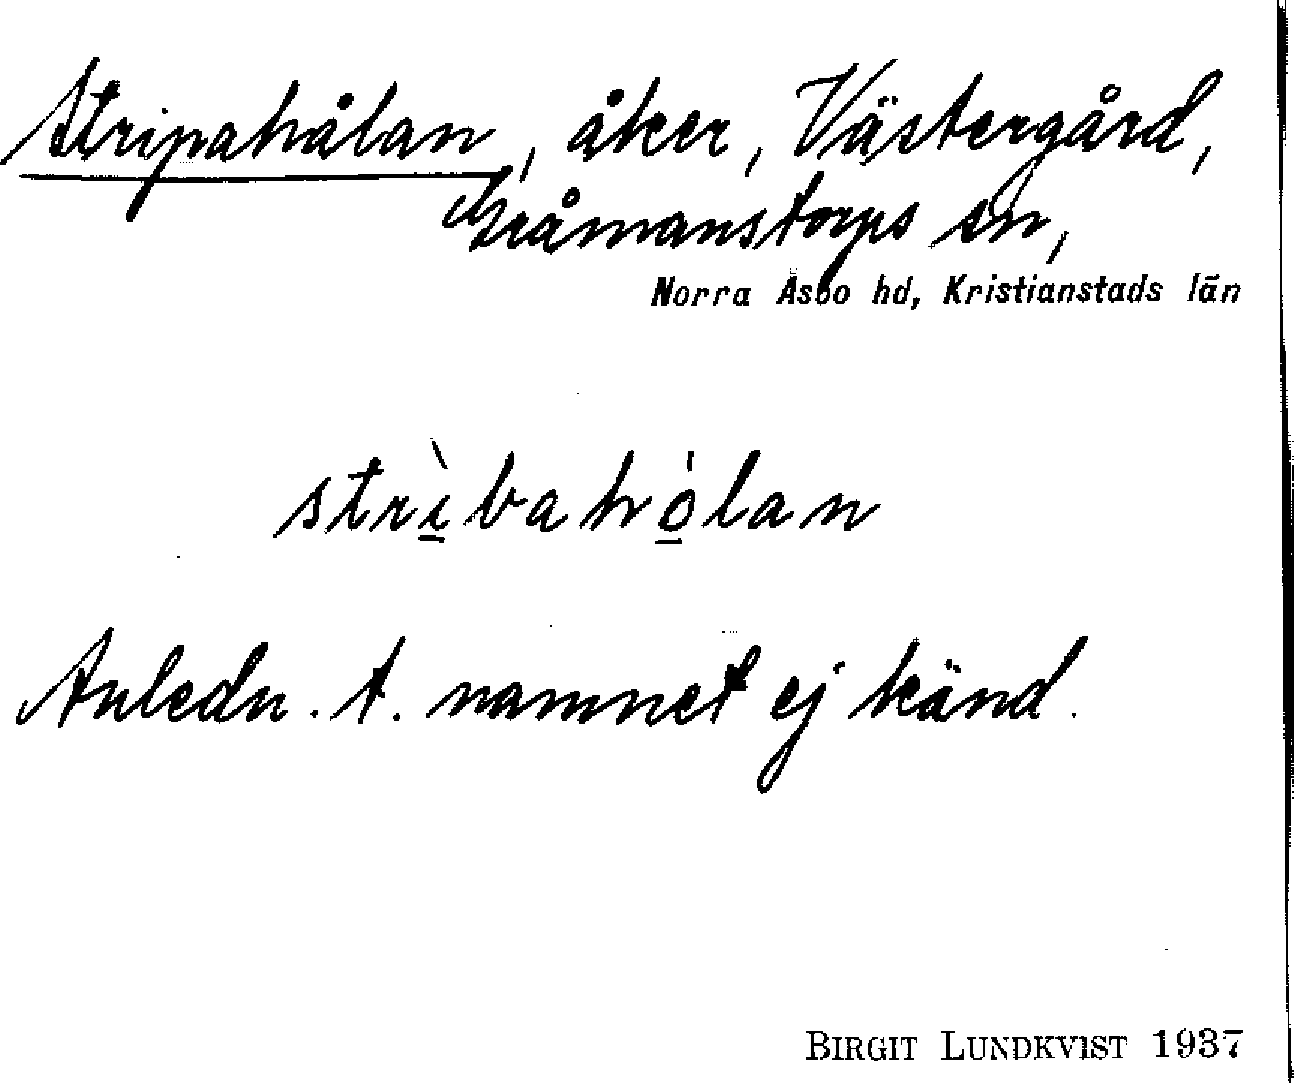 Stripahålan, åker, Västergård,
Gråmanstorps sn,
Norra Åsbo hd, Kristianstads län
strìbahòlan
Anledn. t. namnet ej känd.
BIRGIT LUNDKVIST 1937